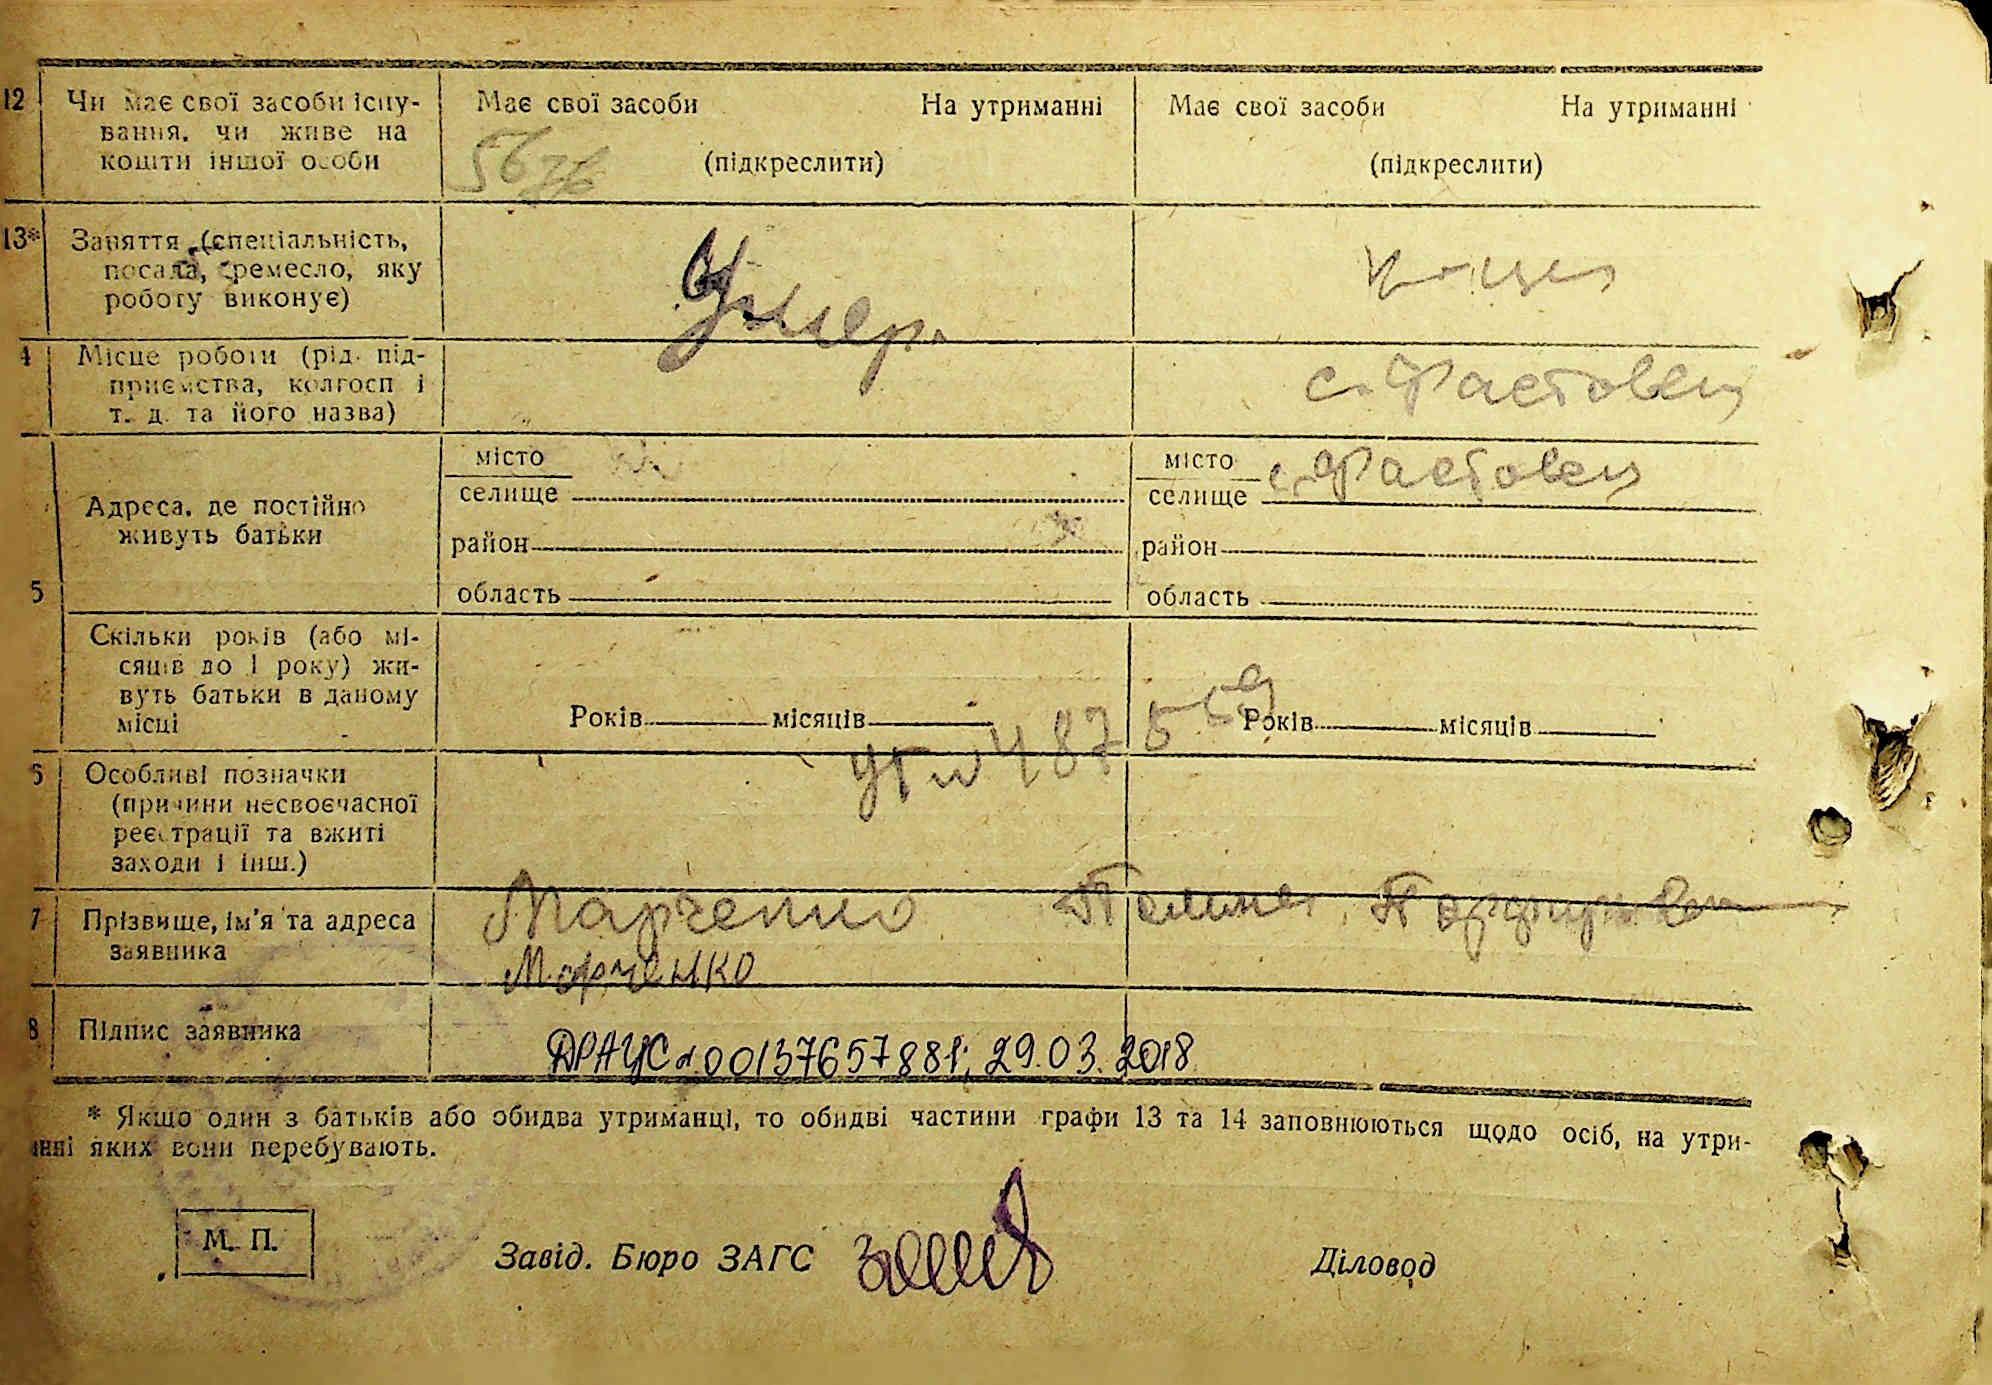 12 Чи має свої засоби існу-
вання, чи живе на
кошти іншої особи
Має свої засоби На утриманні
(підкреслити)
Має свої засоби На утриманні
(підкреслити)
13* Заняття (спеціальність,
посада, ремесло, яку
роботу виконує)
Умер.
4 Місце роботи (рід під-
приємства, колгосп і
т. д. та його назва)
с. Фастовец
5 Адреса, де постійно
живуть батьки
місто
селище
район
область
місто с. Фастовец
селище
район
область
Скільки років (або мі-
сяців до 1 року) жи-
вуть батьки в даному
місці
Років місяців
Років місяців
4875
6 Особливі позначки
(причини несвоєчасної
реєстрації та вжиті
заходи і інш.)
7 Прізвище, ім'я та адреса
заявника
Марченко
Марченко
8 Підпис заявника
ДРАЦС 00137657881; 29.03.2018
* Якщо один з батьків або обидва утриманці, то обидві частини графи 13 та 14 заповнюються щодо осіб, на утри-
нні яких вони перебувають.
М. П.
Завід. Бюро ЗАГС
Діловод